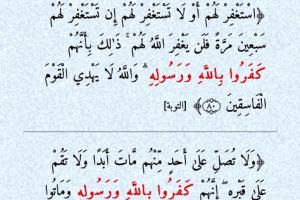 ﴿اسْتَغْفِرْ لَهُمْ أَوْ لَا تَسْتَغْفِرْ لَهُمْ إِن تَسْتَغْفِرْ لَهُمْ
سَبْعِينَ مَرَّةً فَلَن يَغْفِرَ اللَّهُ لَهُمْ ۚ ذَٰلِكَ بِأَنَّهُمْ
كَفَرُوا بِاللَّهِ وَرَسُولِهِ ۗ وَاللَّهُ لَا يَهْدِي الْقَوْمَ
الْفَاسِقِينَ ﴿٨٠﴾ [التوبة]
﴿وَلَا تُصَلِّ عَلَىٰ أَحَدٍ مِّنْهُم مَّاتَ أَبَدًا وَلَا تَقُمْ
عَلَىٰ قَبْرِهِ ۖ إِنَّهُمْ كَفَرُوا بِاللَّهِ وَرَسُولِهِ وَمَاتُوا